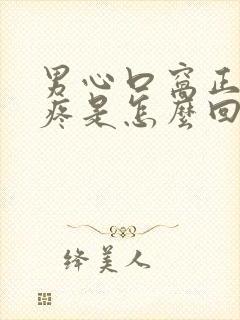 男心口窝正
疼是怎麽回
绛美人